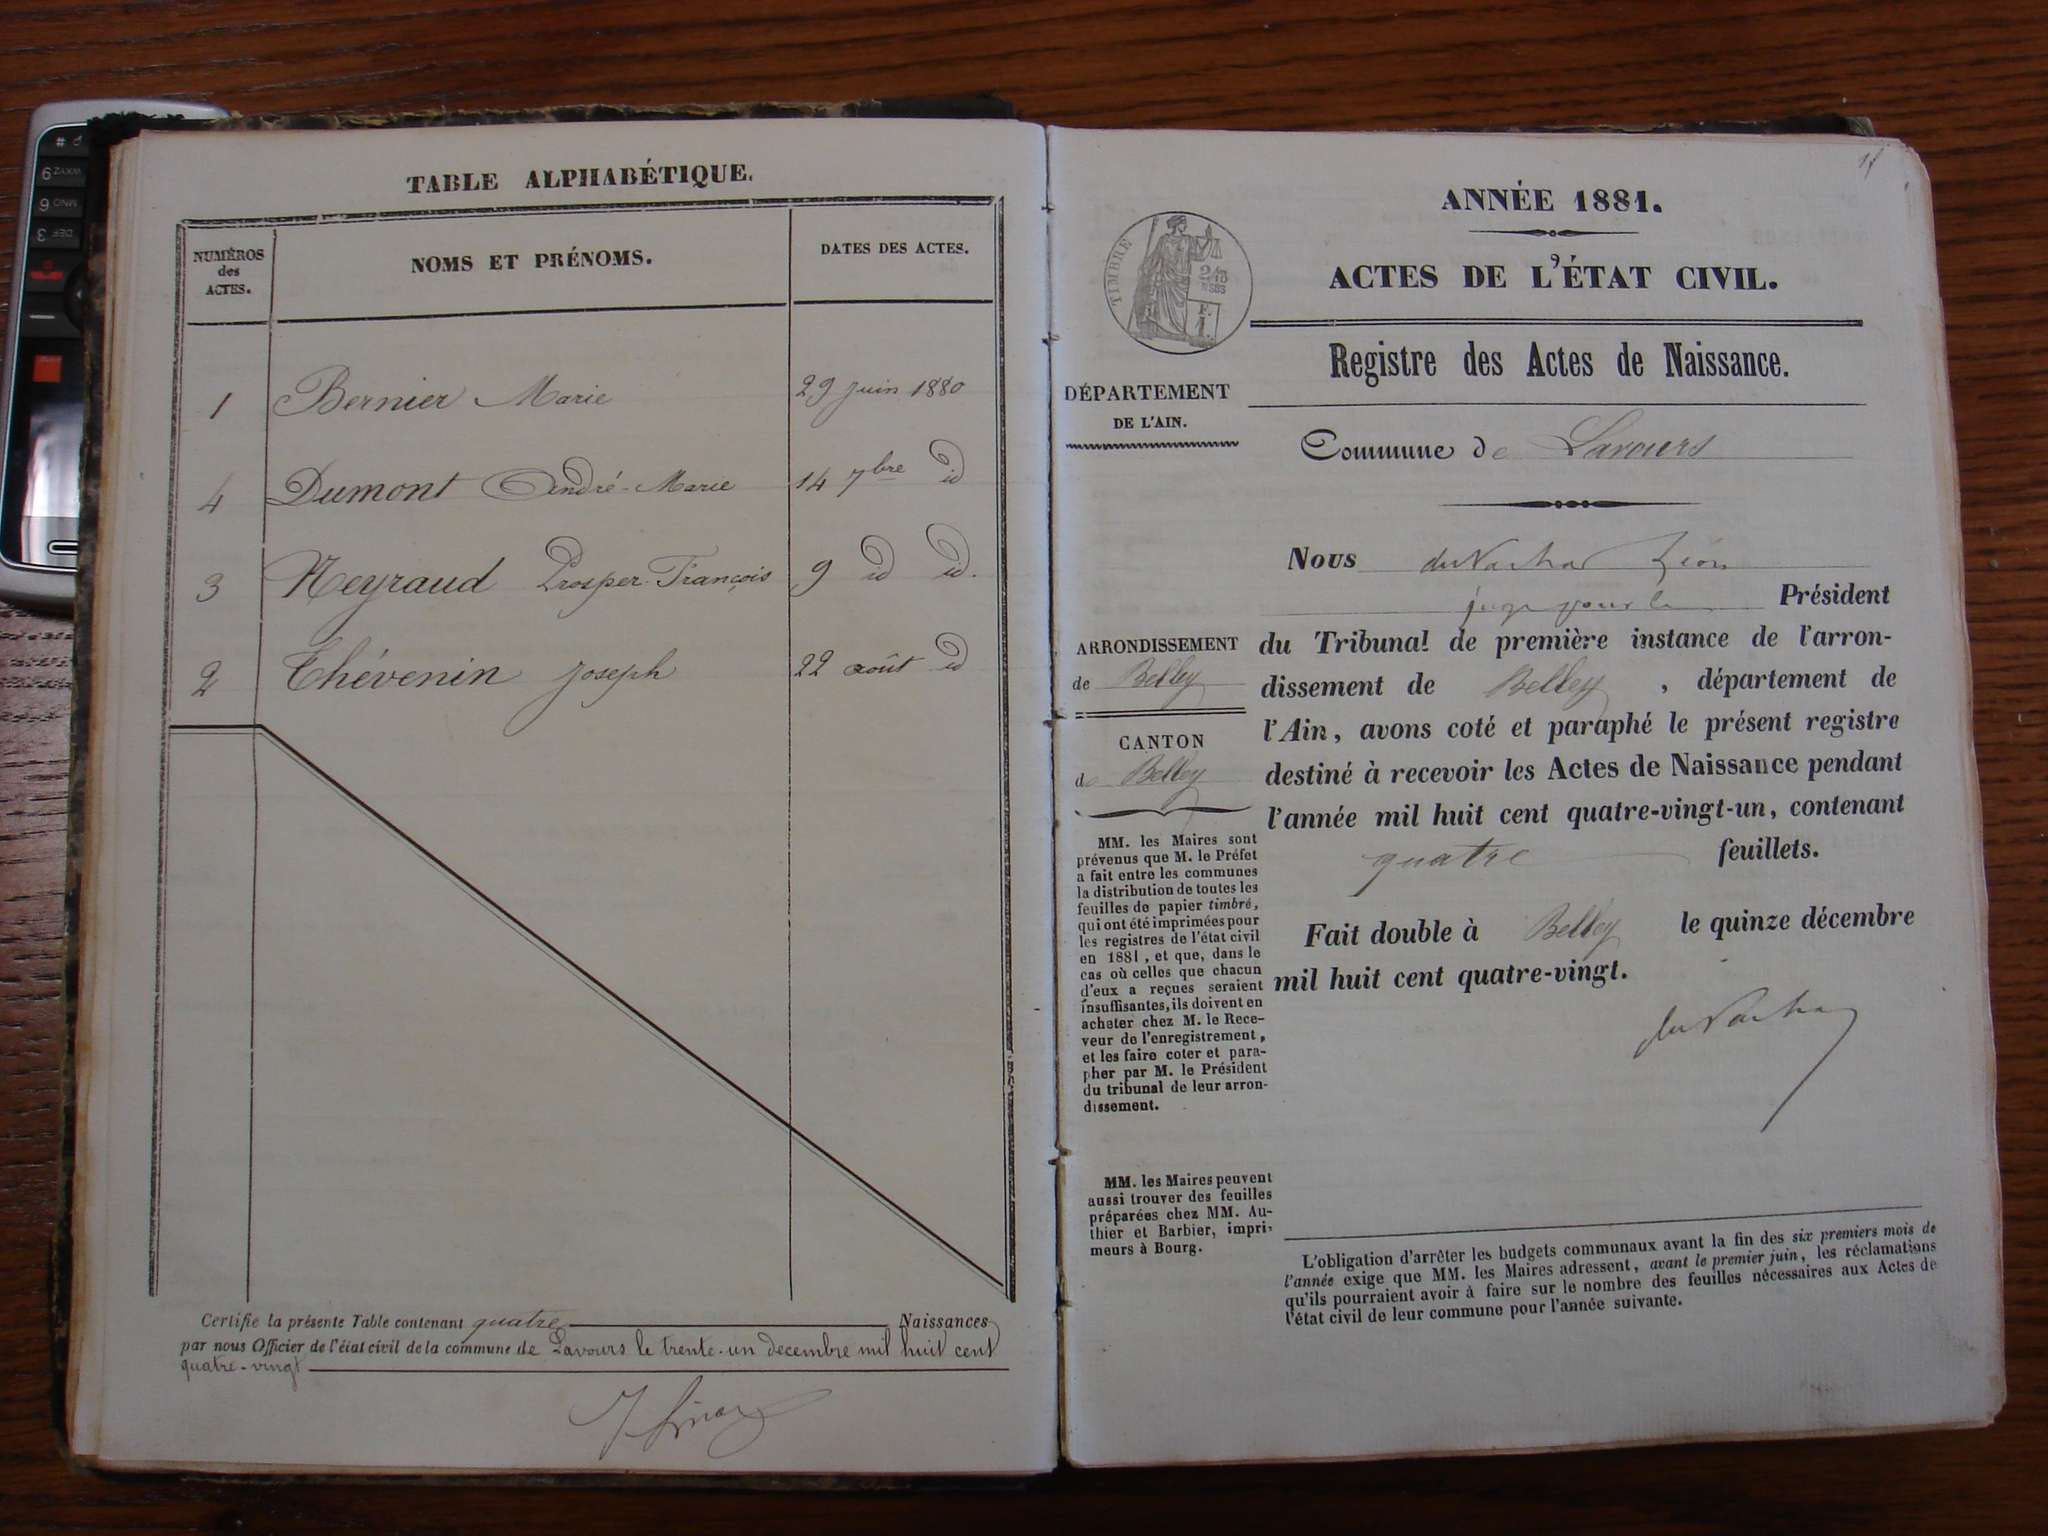 TABLE ALPHABÉTIQUE.
NUMÉROS des ACTES.
NOMS ET PRÉNOMS.
DATES DES ACTES.
1 Bernier Marie 29 juin 1880
4 Dumont André-Marie 14 7bre id
3 Neyraud Prosper-François 9 id id.
2 Thévenin Joseph 22 août id
Certifie la présente Table contenant quatre Naissances
par nous Officier de l'état civil de la commune de Lavours le trente-un decembre mil huit cent
quatre-vingt
ANNÉE 1881.
ACTES DE L'ÉTAT CIVIL.
TIMBRE
Registre des Actes de Naissance.
DÉPARTEMENT
DE L'AIN.
Commune de Lavours
Nous Léon
juge pour le Président
du Tribunal de première instance de l'arron-
dissement de Belley, département de
l'Ain, avons coté et paraphé le présent registre
destiné à recevoir les Actes de Naissance pendant
l'année mil huit cent quatre-vingt-un, contenant
quatre feuillets.
Fait double à Belley le quinze décembre
mil huit cent quatre-vingt.
ARRONDISSEMENT
de Belley
CANTON
de Belley
MM. les Maires sont
prévenus que M. le Préfet
a fait entre les communes
la distribution de toutes les
feuilles de papier timbré,
qui ont été imprimées pour
les registres de l'état civil
en 1881, et que, dans le
cas où celles que chacun
d'eux a reçues seraient
insuffisantes, ils doivent en
acheter chez M. le Rece-
veur de l'enregistrement,
et les faire coter et para-
pher par M. le Président
du tribunal de leur arron-
dissement.
MM. les Maires peuvent
aussi trouver des feuilles
préparées chez MM. Au-
thier et Barbier, impri-
meurs à Bourg.
L'obligation d'arrêter les budgets communaux avant la fin des six premiers mois de
l'année exige que MM. les Maires adressent, avant le premier juin, les réclamations
qu'ils pourraient avoir à faire sur le nombre des feuilles nécessaires aux Actes de
l'état civil de leur commune pour l'année suivante.